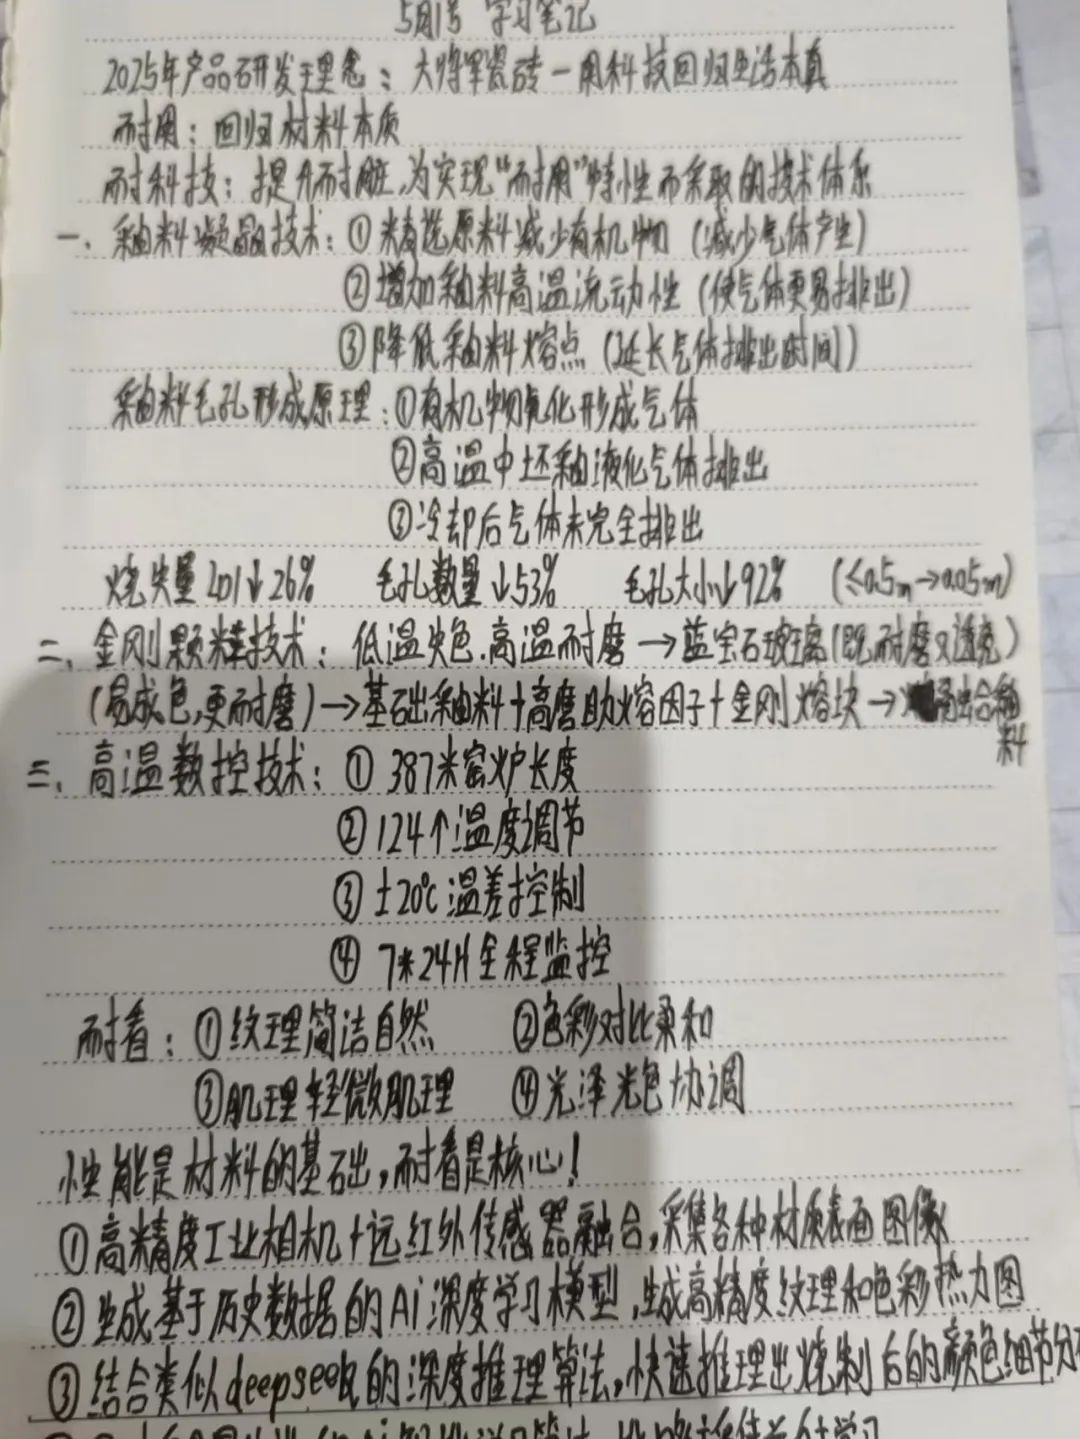 5月1号 学习笔记
2025年产品研发理念：大将军瓷砖一用科技回归生活本真
耐用：回归材料本质
耐科技：提升耐脏,为实现“耐用”特性而采取的技术体系
一、釉料凝晶技术：①精选原料减少有机物（减少气体产生）
②增加釉料高温流动性（使气体更易排出）
③降低釉料熔点（延长气体排出时间）
釉料毛孔形成原理：①有机物氧化形成气体
②高温中坯釉液化气体排出
③冷却后气体未完全排出
烧失量201↓26% 毛孔数量↓53% 毛孔大小↓92% (≤0.5m→0.05m)
二、金刚颗粒技术：低温发色.高温耐磨→蓝宝石玻璃(既耐磨又透亮)
(易成色,更耐磨)→基础釉料+高磨助熔因子+金刚熔块→出合釉料
三、高温数控技术：① 387米窑炉长度
② 124个温度调节
③ ±20℃温差控制
④ 7*24H全程监控
耐看：①纹理简洁自然 ②色彩对比柔和
③肌理轻微肌理 ④光泽光色协调
性能是材料的基础,耐看是核心!
①高精度工业相机+远红外传感器融合,采集各种材质表面图像
②生成基于历史数据的Ai深度学习模型,生成高精度纹理和色彩热力图
③结合类似deepseek的深度推理算法,快速推理出烧制后的颜色细节分